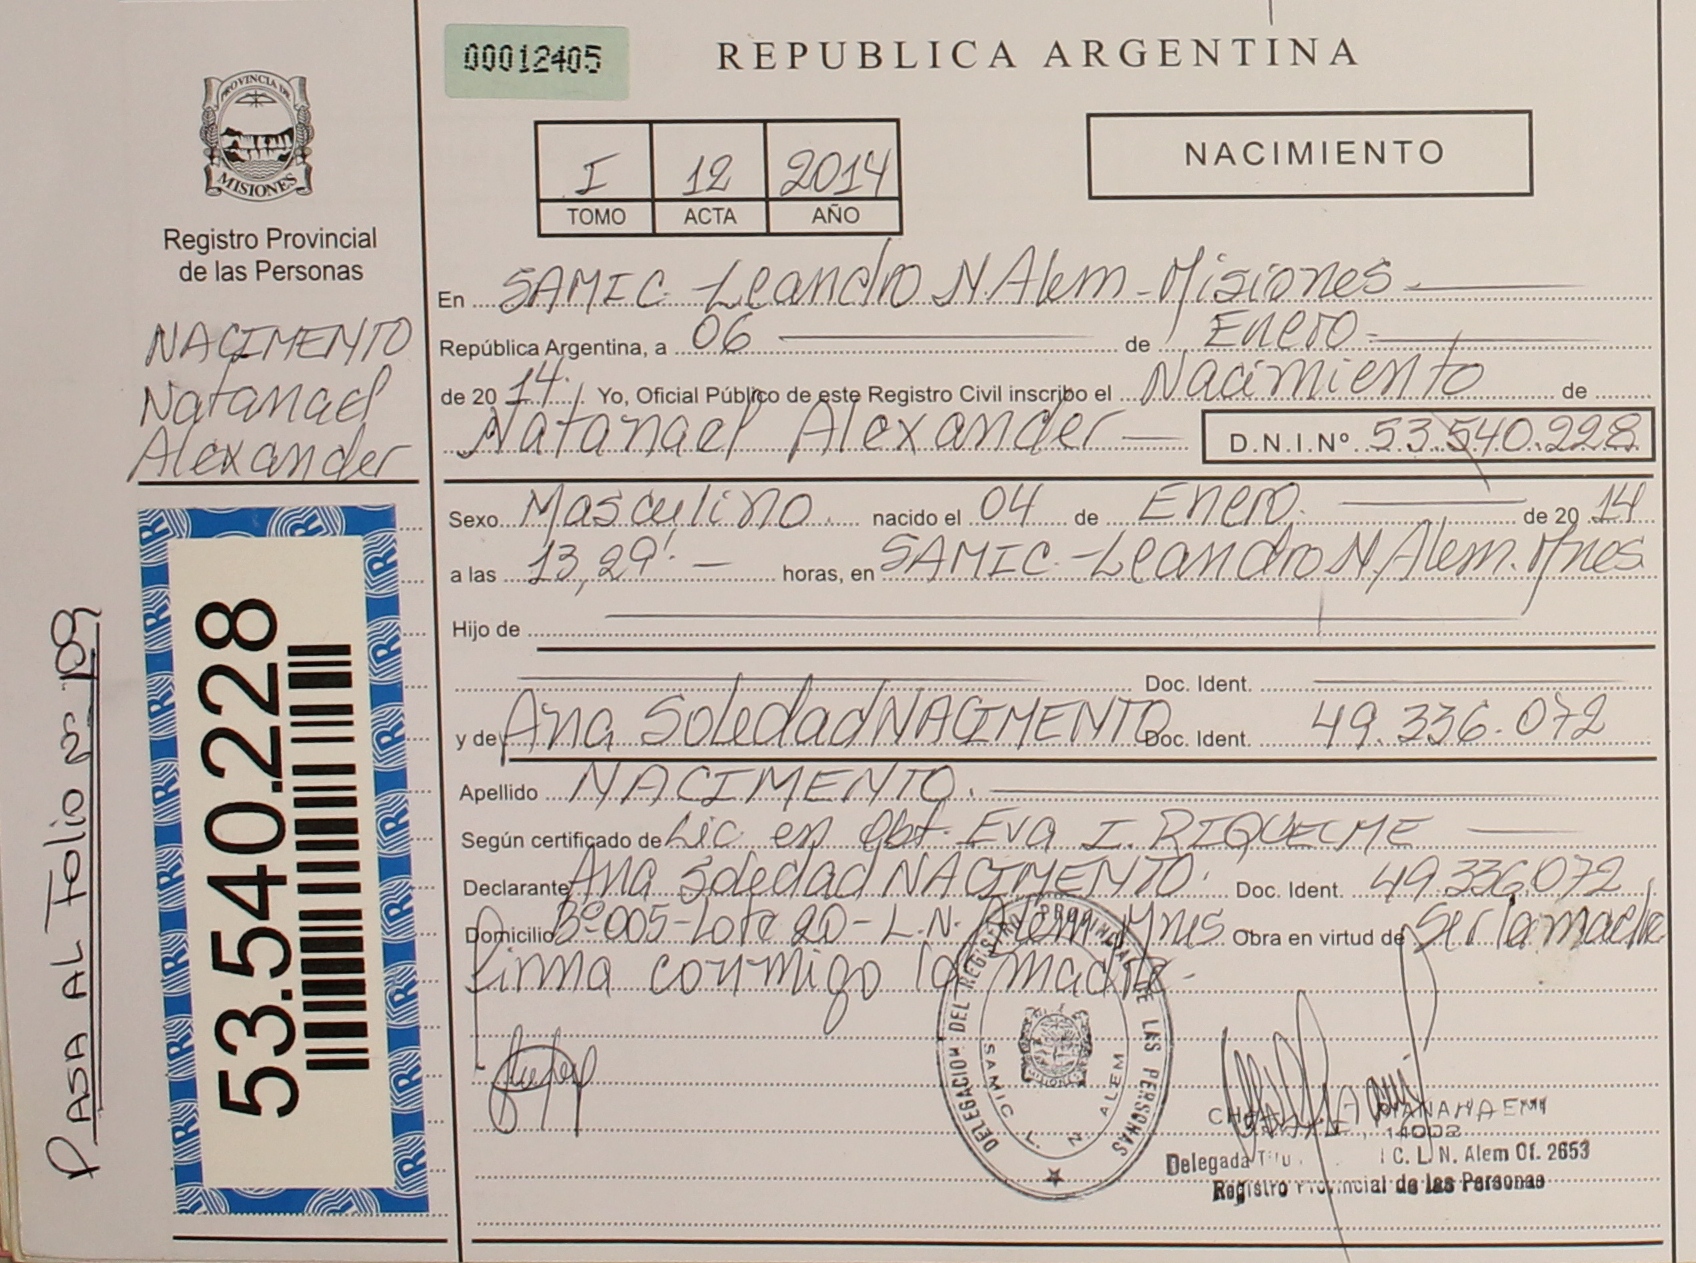 00012405
REPUBLICA ARGENTINA
PROVINCIA DE
MISIONES
Registro Provincial
de las Personas
I 12 2014
TOMO ACTA AÑO
NACIMIENTO
NACIMENTO
Natanael
Alexander
En SAMIC - Leandro N Alem - Misiones
República Argentina, a 06 de Enero
de 2014. Yo, Oficial Público de este Registro Civil inscribo el Nacimiento de
Natanael Alexander D.N.I.Nº 53.540.228
Sexo Masculino nacido el 04 de Enero de 2014
a las 13,29' horas, en SAMIC - Leandro N. Alem. Mnes
Hijo de
Doc. Ident.
y de Ana Soledad NACIMENTO Doc. Ident. 49.336.072
Apellido NACIMENTO.
Según certificado de Lic en Obt. Eva I. RIQUELME
Declarante Ana Soledad NACIMENTO. Doc. Ident. 49.336.072
Domicilio Bº 005 - Lote 20 - L.N. Alem Mnes Obra en virtud de Ser la madre
firma conmigo la madre -
DELEGACION DEL REGISTRO PROVINCIAL DE LAS PERSONAS
SAMIC L. N. ALEM
MISIONES
14002
Delegada C. L. N. Alem Of. 2653
Registro Provincial de las Personas
53.540.228
PASA AL Folio Nº 109